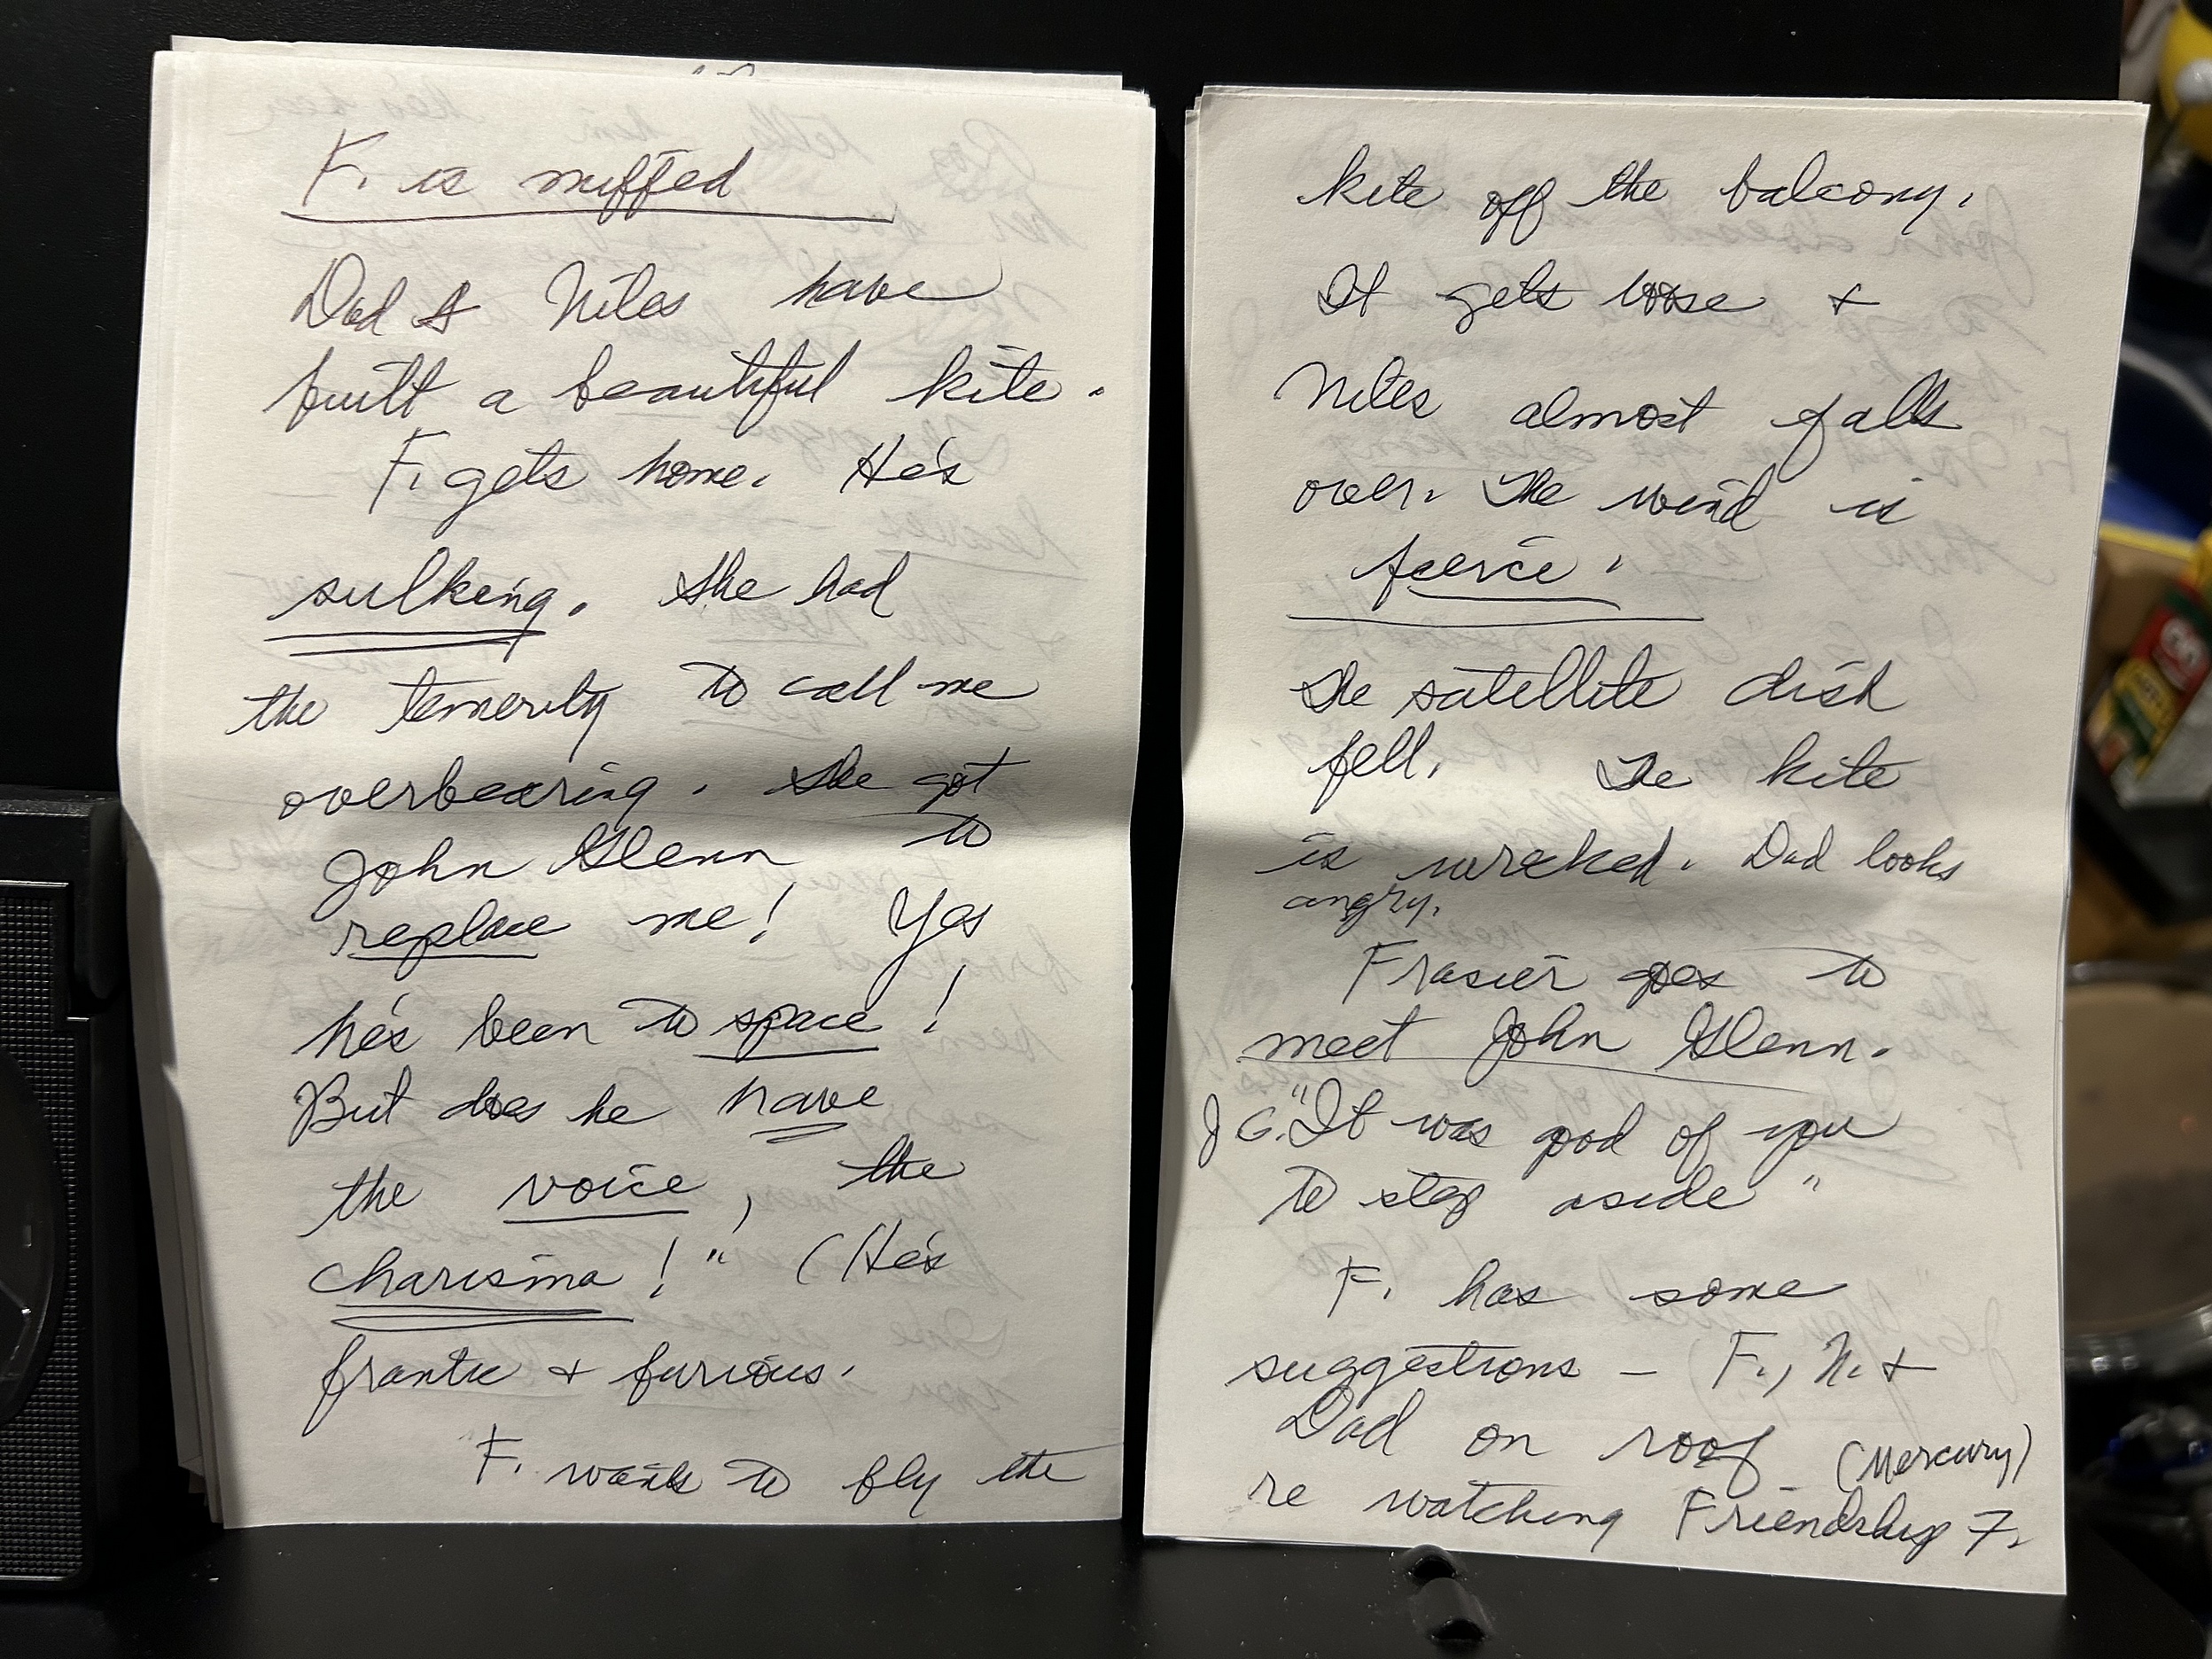 F. is miffed
Dad & Niles have
built a beautiful kite.
F. gets home. He's
sulking. She had
the temerity to call me
overbearing. She got
John Glenn to
replace me! Yes
he's been to space!
But does he have
the voice, the
charisma!" (He's
frantic & furious.
F. wants to fly the
kite off the balcony.
It gets loose +
Niles almost falls
over. The wind is
fierce.
The satellite dish
fell. The kite
is wrecked. Dad looks
angry.
Frasier goes to
meet John Glenn.
J G. "It was good of you
to step aside"
F. has some
suggestions – F., N. +
Dad on roof (Mercury)
re watching Friendship 7.